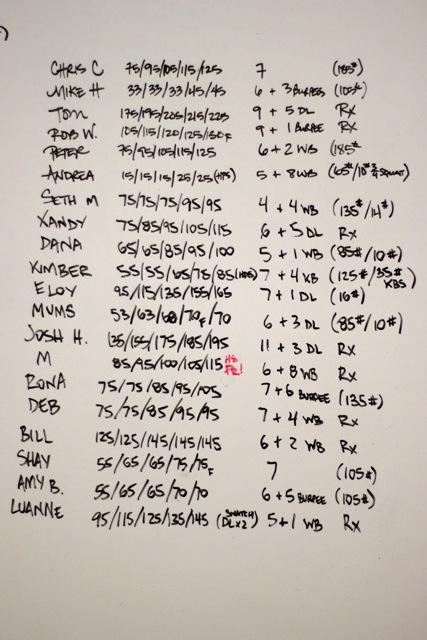 CHRIS C 75/95/105/115/125 7 (185#)
MIKE H 33/33/33/45/45 6 + 3 BURPEES (105#)
TOM 175/195/205/215/225 9 + 5 DL Rx
ROB W. 105/115/120/125/130F 9 + 1 BURPEE Rx
PETER 75/95/105/115/125 6 + 2 WB (185#
ANDREA 15/15/15/25/25 (HPS) 5 + 8 WB (65#/10# SQUAT)
SETH M 75/75/75/95/95 4 + 4 WB (135#/14#)
XANDY 75/85/95/105/115 6 + 5 DL Rx
DANA 65/65/85/95/100 5 + 1 WB (85#/10#)
KIMBER 55/55/65/75/85 7 + 4 KB (125#/35# KBS)
ELOY 95/115/135/155/165 7 + 1 DL (16#)
MUMS 53/63/68/70F/70 6 + 3 DL (85#/10#)
JOSH H. 135/155/175/185/195 11 + 3 DL Rx
M 85/95/100/105/115 HS PR! 6 + 8 WB Rx
RONA 75/75/85/95/105 7 + 6 BURPEE (135#)
DEB 75/75/85/95/95 7 + 4 WB Rx
BILL 125/125/145/145/145 6 + 2 WB Rx
SHAY 55/65/65/75/75F 7 (105#)
AMY B. 55/65/65/70/70 6 + 5 BURPEE (105#)
LUANNE 95/115/125/135/145 (SNATCH DLx2) 5 + 1 WB Rx